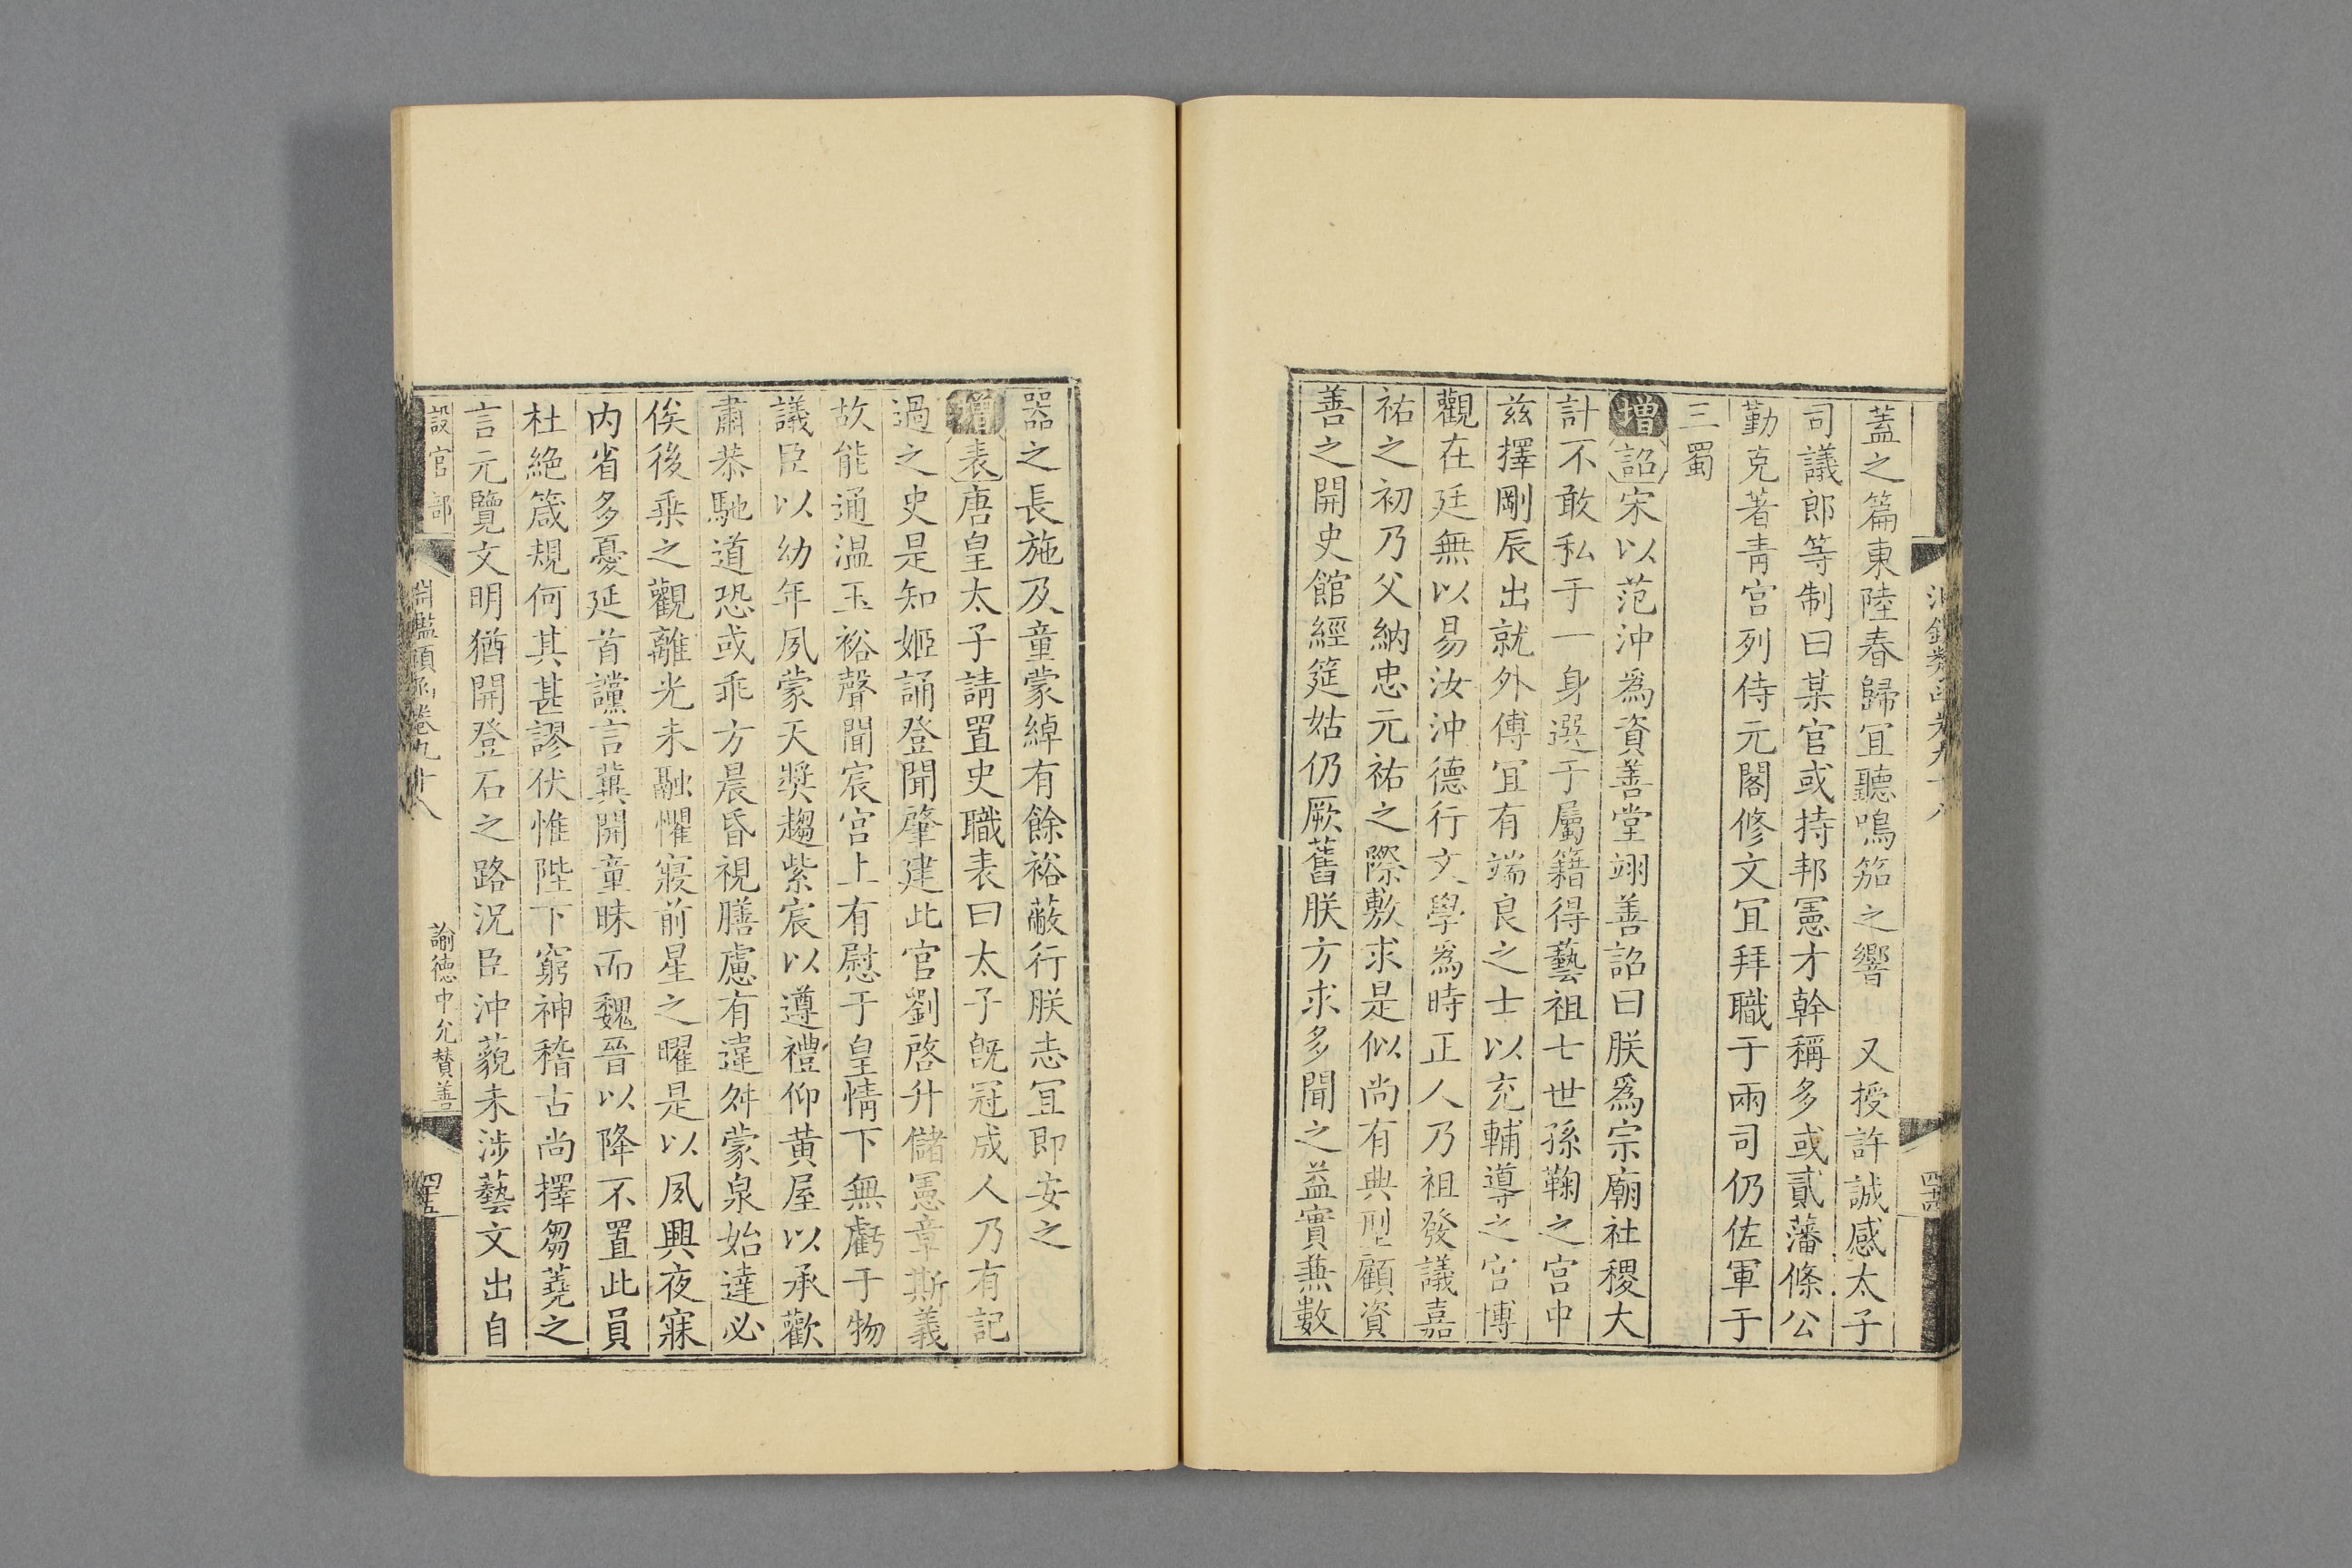 蓋之篇東陸春歸冝聽鳴笳之響　又授許誠感太子
司議郎等制曰某官或持邦憲才幹稱多或貳藩條公
勤克著青宮列侍元閣修文冝拜職于兩司仍佐軍于
三蜀
增詔宋以范沖爲資善堂翊善詔曰朕爲宗廟社稷大
計不敢私于一身選于屬籍得藝祖七世孫鞠之宮中
兹擇剛辰出就外傅冝有端良之士以充輔導之宮博
觀在廷無以易汝沖德行文學爲時正人乃祖發議嘉
祐之初乃父納忠元祐之際敷求是似尚有典型顧資
善之開史館經筵姑仍厥舊朕方求多聞之益實兼數
器之長施及童蒙綽有餘裕蔽行朕志冝即安之
增表唐皇太子請置史職表曰太子旣冠成人乃有記
過之史是知姬誦登聞肇建此官劉啓升儲憲章斯義
故能通温玉裕聲聞宸宮上有慰于皇情下無虧于物
議臣以幼年夙蒙天奬趨紫宸以遵禮仰黄屋以承歡
肅恭馳道恐或乖方晨昏視膳慮有違舛蒙泉始達必
俟後乘之觀離光未融懼寢前星之曜是以夙興夜寐
内省多憂延首讜言冀開童昧而魏晉以降不置此員
杜絶箴規何其甚謬伏惟陛下窮神稽古尚擇芻蕘之
言元覽文明猶開登石之路況臣沖藐未涉藝文出自
設官部　淵鑑類函卷九十八　諭德中允贊善　四五